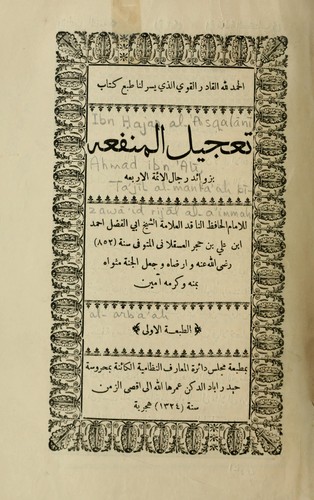 الحمد لله القادر القوي الذي يسر لنا طبع كتاب
Ibn Hajar al-Asqalani
تعجيل المنفعه
Ahmad ibn Ali
بزوائد رجال الائمة الاربعه
Ta'jil al-manfa'ah bi-
zawa'id rijal al-a'immah
للامام الحافظ الناقد العلامة الشيخ ابى الفضل احمد
ابن علي بن حجر العسقلانى المتوفى سنة (٨٥٢)
رضى الله عنه وارضاه وجعل الجنة مثواه
بمنه وكرمه آمين
al-arba'ah
﴿الطبعة الاولى﴾
بمطبعة مجلس دائرة المعارف النظامية الكائنة بمحروسة
حيدر اباد الدكن عمرها الله الى اقصى الزمن
سنة (١٣٢٤) هجرية